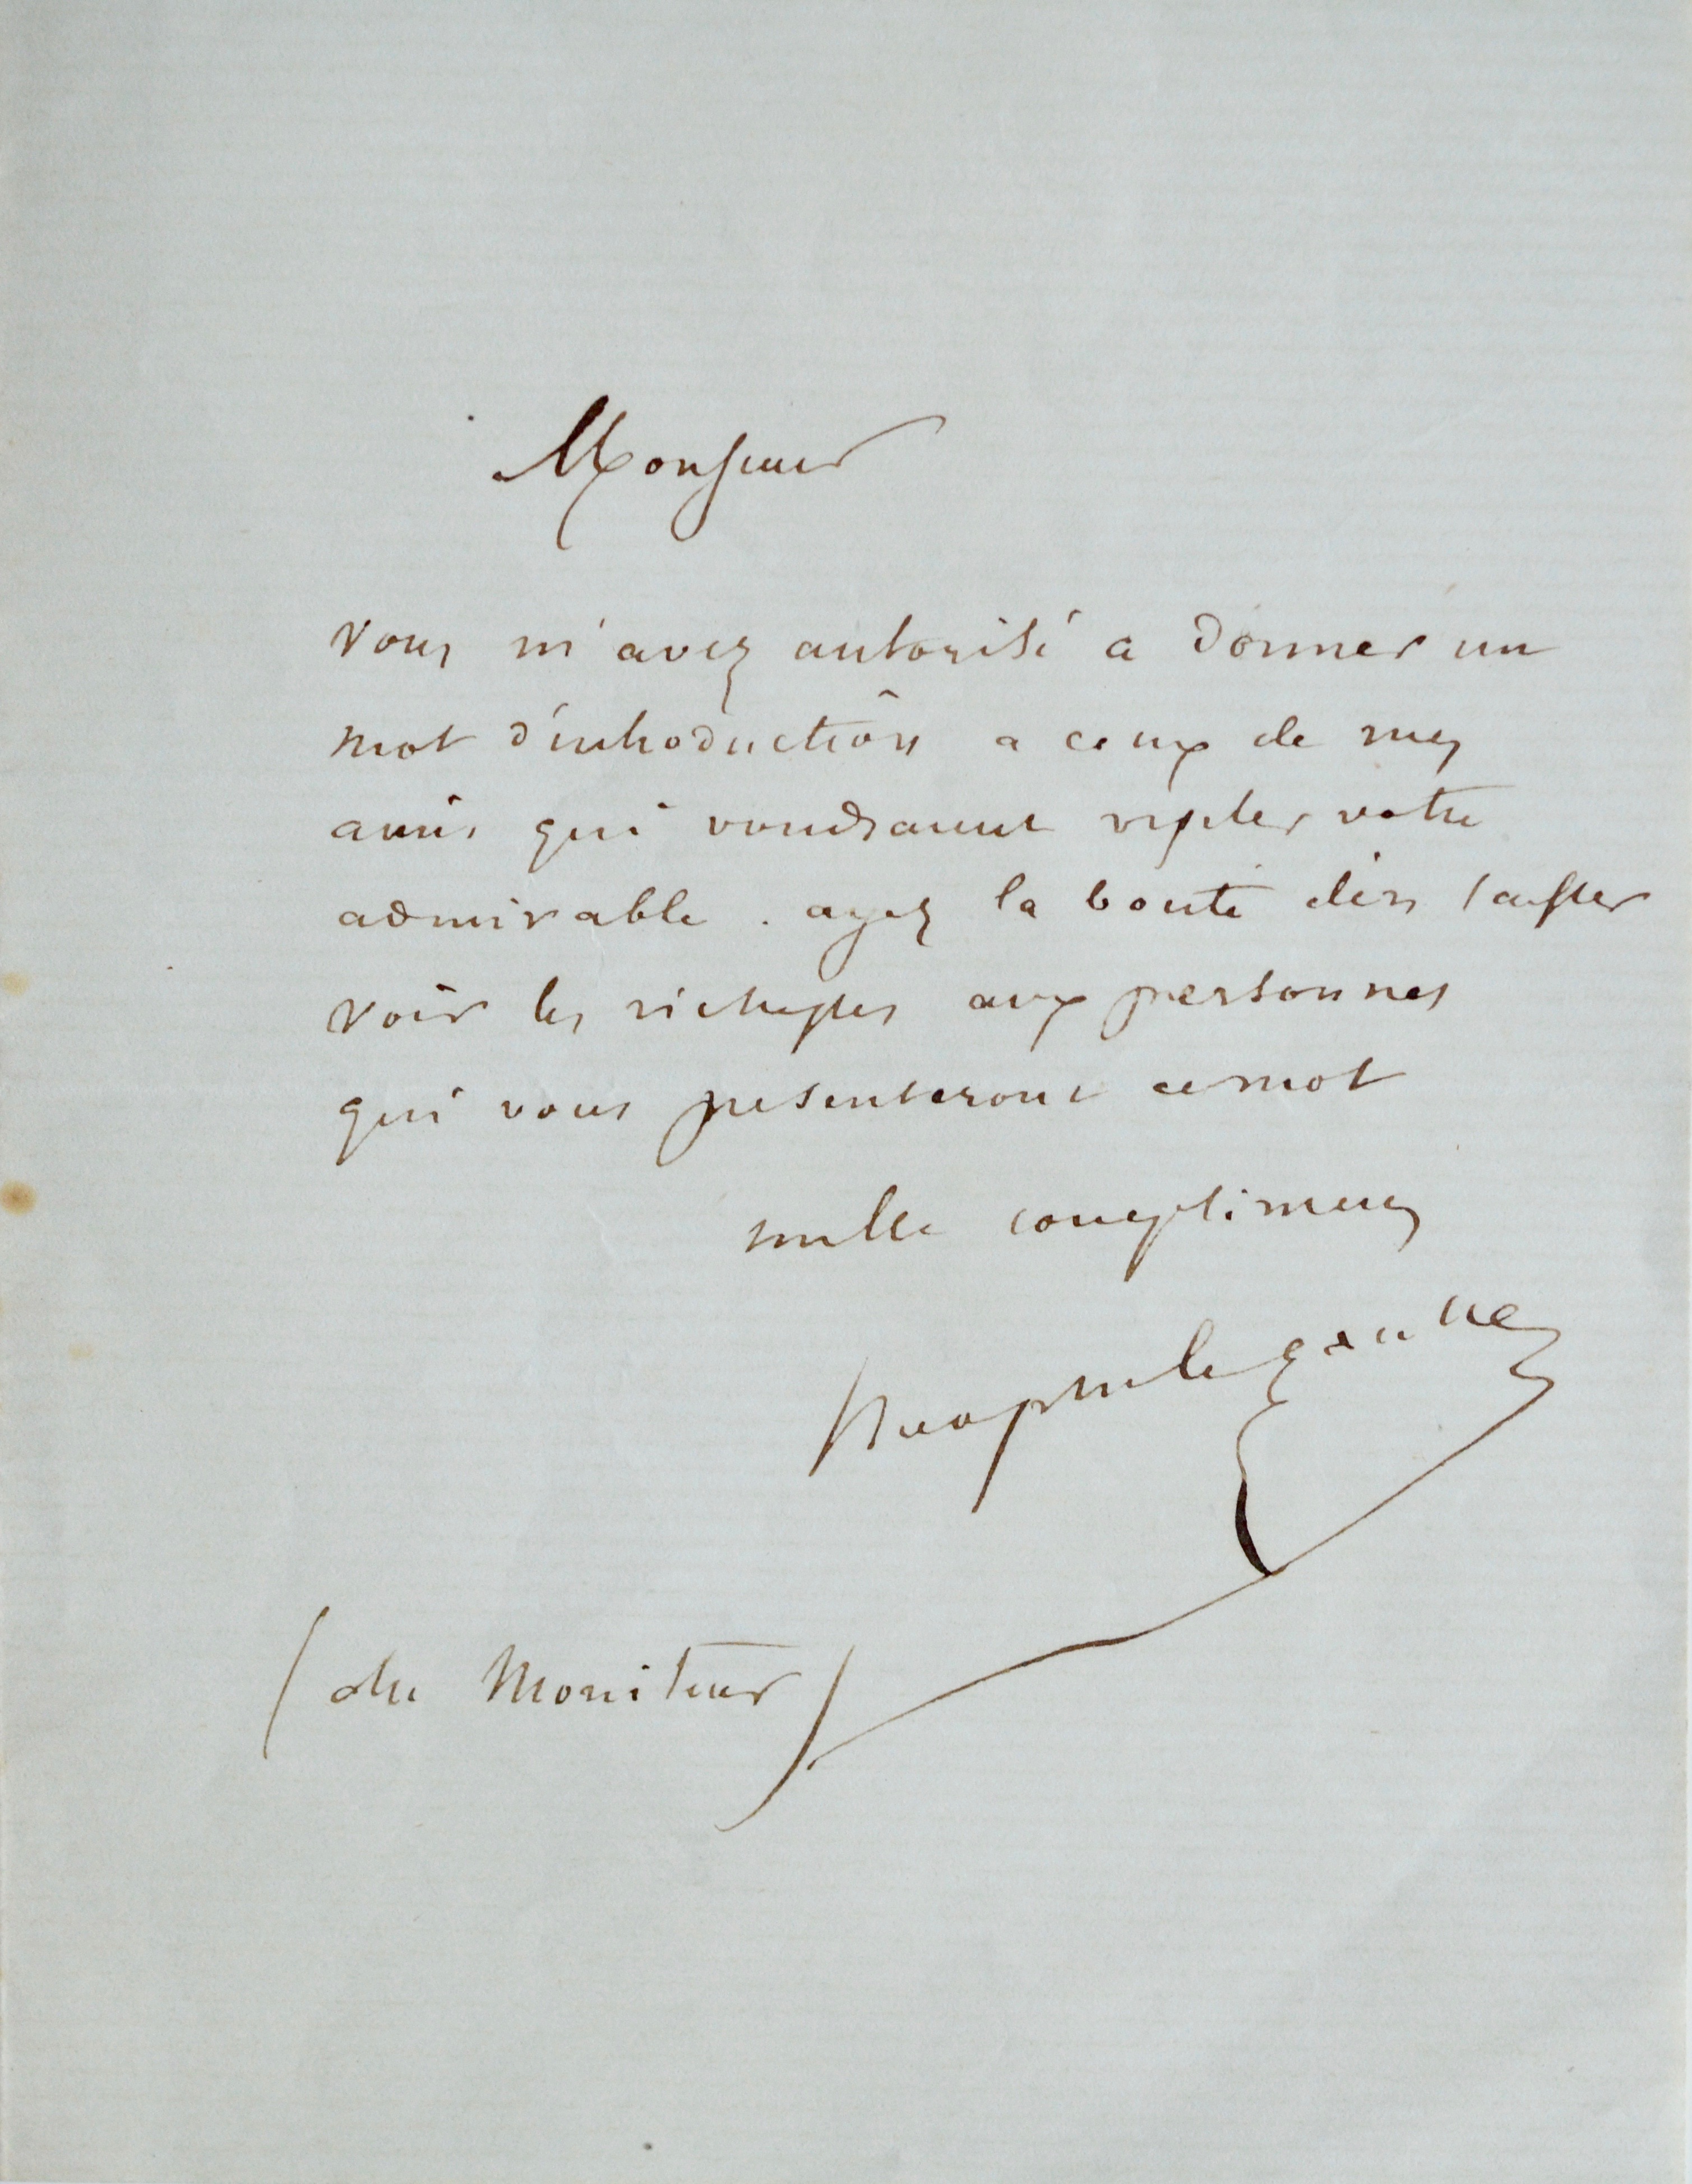 Monsieur
Vous m'avez autorisé a donner un
mot d'introduction a ceux de mes
amis qui voudraient visiter votre
admirable . ayez la bonté d'en laisser
voir les richesses aux personnes
qui vous presenteront ce mot
mille complimens
(du Moniteur)